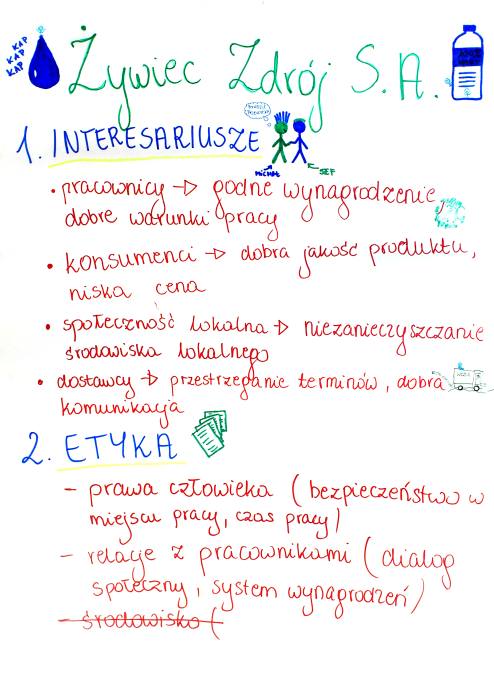 KAP
KAP
KAP
Żywiec Zdrój S.A.
1. INTERESARIUSZE
MICHAŁ
SEF
• pracownicy → godne wynagrodzenie,
dobre warunki pracy
• konsumenci → dobra jakość produktu,
niska cena
• społeczność lokalna → niezanieczyszczanie
środowiska lokalnego
• dostawcy → przestrzeganie terminów, dobra
komunikacja
2. ETYKA
- prawa człowieka (bezpieczeństwo w
miejscu pracy, czas pracy)
- relacje z pracownikami (dialog
społeczny, system wynagrodzeń)
- środowisko (